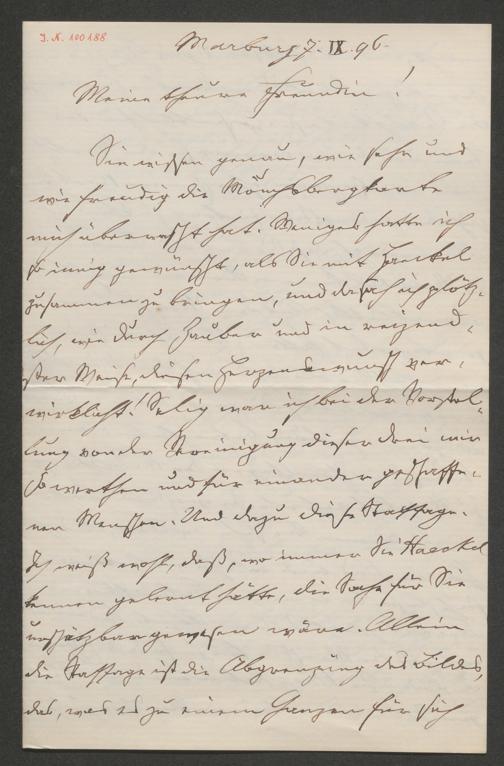 J. N. 100188
Marburg 7. IX. 96.
Meine theure Freundin!
Sie wissen genau, wie sehr und
wie freudig die Mönchsbergkarte
mich überrascht hat. Weniges hatte ich
so innig gewünscht, als Sie mit Haeckel
zusammen zu bringen, und da sah ich plötz-
lich, wie durch Zauber und in reizend-
ster Weise, diesen Herzenswunsch ver-
wirklicht! Selig war ich bei der Vorstel-
lung von der Vereinigung dieser drei mir
so werthen und für einander geschaffe-
nen Menschen. Und dazu diese Staffage.
Ich weiß wohl, daß, wo immer Sie Haeckel
kennen gelernt hätte, die Sache für Sie
unschätzbar gewesen wäre. Allein
die Staffage ist die Abgrenzung des Bildes,
das, was es zu einem Ganzen für sich